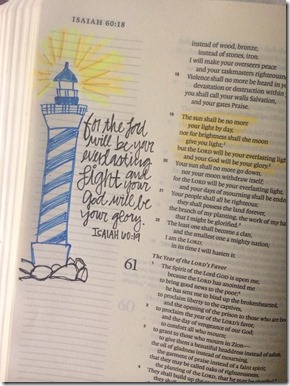 ISAIAH 60:18
for the Lord
will be your
everlasting
light and
your
God will be
your glory.
ISAIAH 60:19
instead of wood, bronze,
instead of stones, iron.
I will make your overseers peace
and your taskmasters
18 Violence shall no more be heard in
devastation or destruction within
you shall call your walls Salvation,
and your gates Praise.
19 The sun shall be no more
your light by day,
nor for brightness shall the moon
give you light;
but the LORD will be your everlasting
and your God will be your glory.
Your sun shall no more go down,
nor your moon withdraw itself;
for the LORD will be your everlasting
and your days of mourning shall be
Your people shall all be righteous;
they shall possess the land forever,
the branch of my planting, the work of my
that I might be glorified.
The least one shall become a clan,
and the smallest one a mighty nation;
I am the LORD;
in its time I will hasten it.
61
The Year of the LORD's Favor
The Spirit of the Lord GOD is upon me,
because the LORD has anointed me
to bring good news to the poor;
he has sent me to bind up the brokenhearted,
to proclaim liberty to the captives,
and the opening of the prison to those who are
to proclaim the year of the LORD's favor,
and the day of vengeance of our God;
to comfort all who mourn;
to grant to those who mourn in Zion—
to give them a beautiful headdress instead of
the oil of gladness instead of mourning,
the garment of praise instead of a faint spirit;
that they may be called oaks of righteousness,
the planting of the LORD, that he may be
They shall build up the